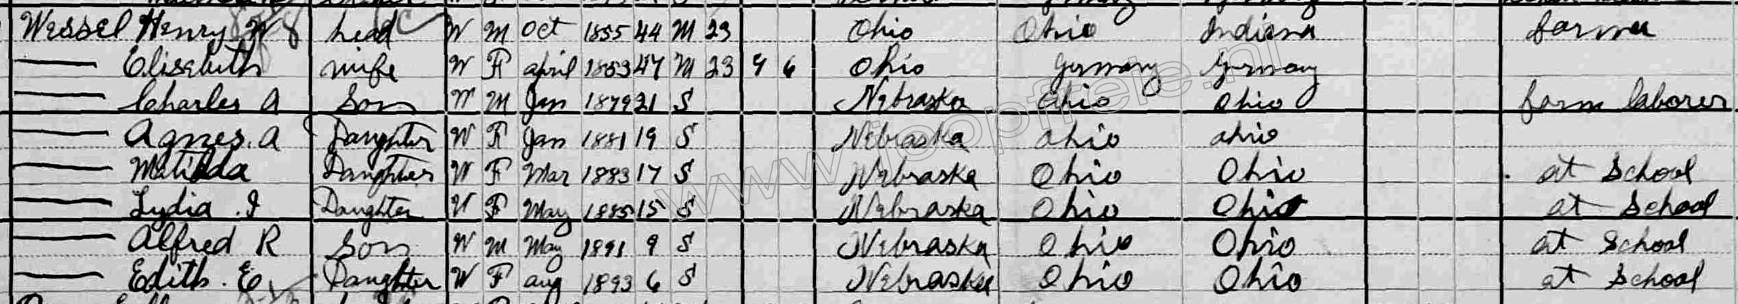 Wessel Henry W head W M Oct 1855 44 M 23 Ohio Ohio Indiana farmer
— Elisabeth wife W F april 1853 47 M 23 9 6 Ohio Germany Germany
— Charles A Son W M Jan 1879 21 S Nebraska Ohio Ohio farm laborer
— Agnes. A Daughter W F Jan 1881 19 S Nebraska ohio ohio
— Matilda Daughter W F Mar 1883 17 S Nebraska Ohio Ohio at School
— Lydia . I Daughter W F May 1885 15 S Nebraska Ohio Ohio at School
— Alfred R Son W M May 1891 9 S Nebraska Ohio Ohio at School
— Edith. E Daughter W F aug 1893 6 S Nebraska Ohio Ohio at School